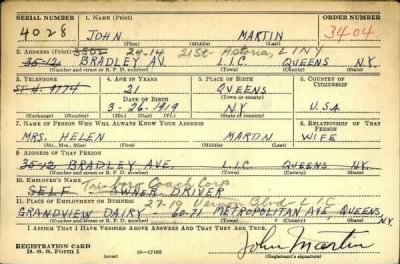 SERIAL NUMBER 1. NAME (Print) ORDER NUMBER
4028 JOHN MARTIN 3404
(First) (Middle) (Last)
2. ADDRESS (Print) 3502 24-14 21 St. Astoria, L I N Y
35-12 BRADLEY AV. L.I.C. QUEENS N.Y.
(Number and street or R. F. D. number) (Town) (County) (State)
3. TELEPHONE 4. AGE IN YEARS 5. PLACE OF BIRTH 6. COUNTRY OF CITIZENSHIP
ST. 4. 9174 21 QUEENS
DATE OF BIRTH (Town or county)
3-26-1919 N.Y. U.S.A.
(Exchange) (Number) (Mo.) (Day) (Yr.) (State or country)
7. NAME OF PERSON WHO WILL ALWAYS KNOW YOUR ADDRESS 8. RELATIONSHIP OF THAT PERSON
MRS. HELEN MARTIN WIFE
(Mr., Mrs., Miss) (First) (Middle) (Last)
9. ADDRESS OF THAT PERSON
35-12 BRADLEY AVE. L.I.C. QUEENS N.Y.
(Number and street or R. F. D. number) (Town) (County) (State)
10. EMPLOYER'S NAME Coach Corp
SELF OWNER DRIVER
11. PLACE OF EMPLOYMENT OR BUSINESS 27-19 Vernon Blvd - L I C
GRANDVIEW DAIRY - 60-71 METROPOLITAN AVE, QUEENS N.Y.
(Number and street or R. F. D. number) (Town) (County) (State)
I AFFIRM THAT I HAVE VERIFIED ABOVE ANSWERS AND THAT THEY ARE TRUE.
REGISTRATION CARD
D. S. S. Form 1 (over) 16—17105
John Martin
(Registrant's signature)